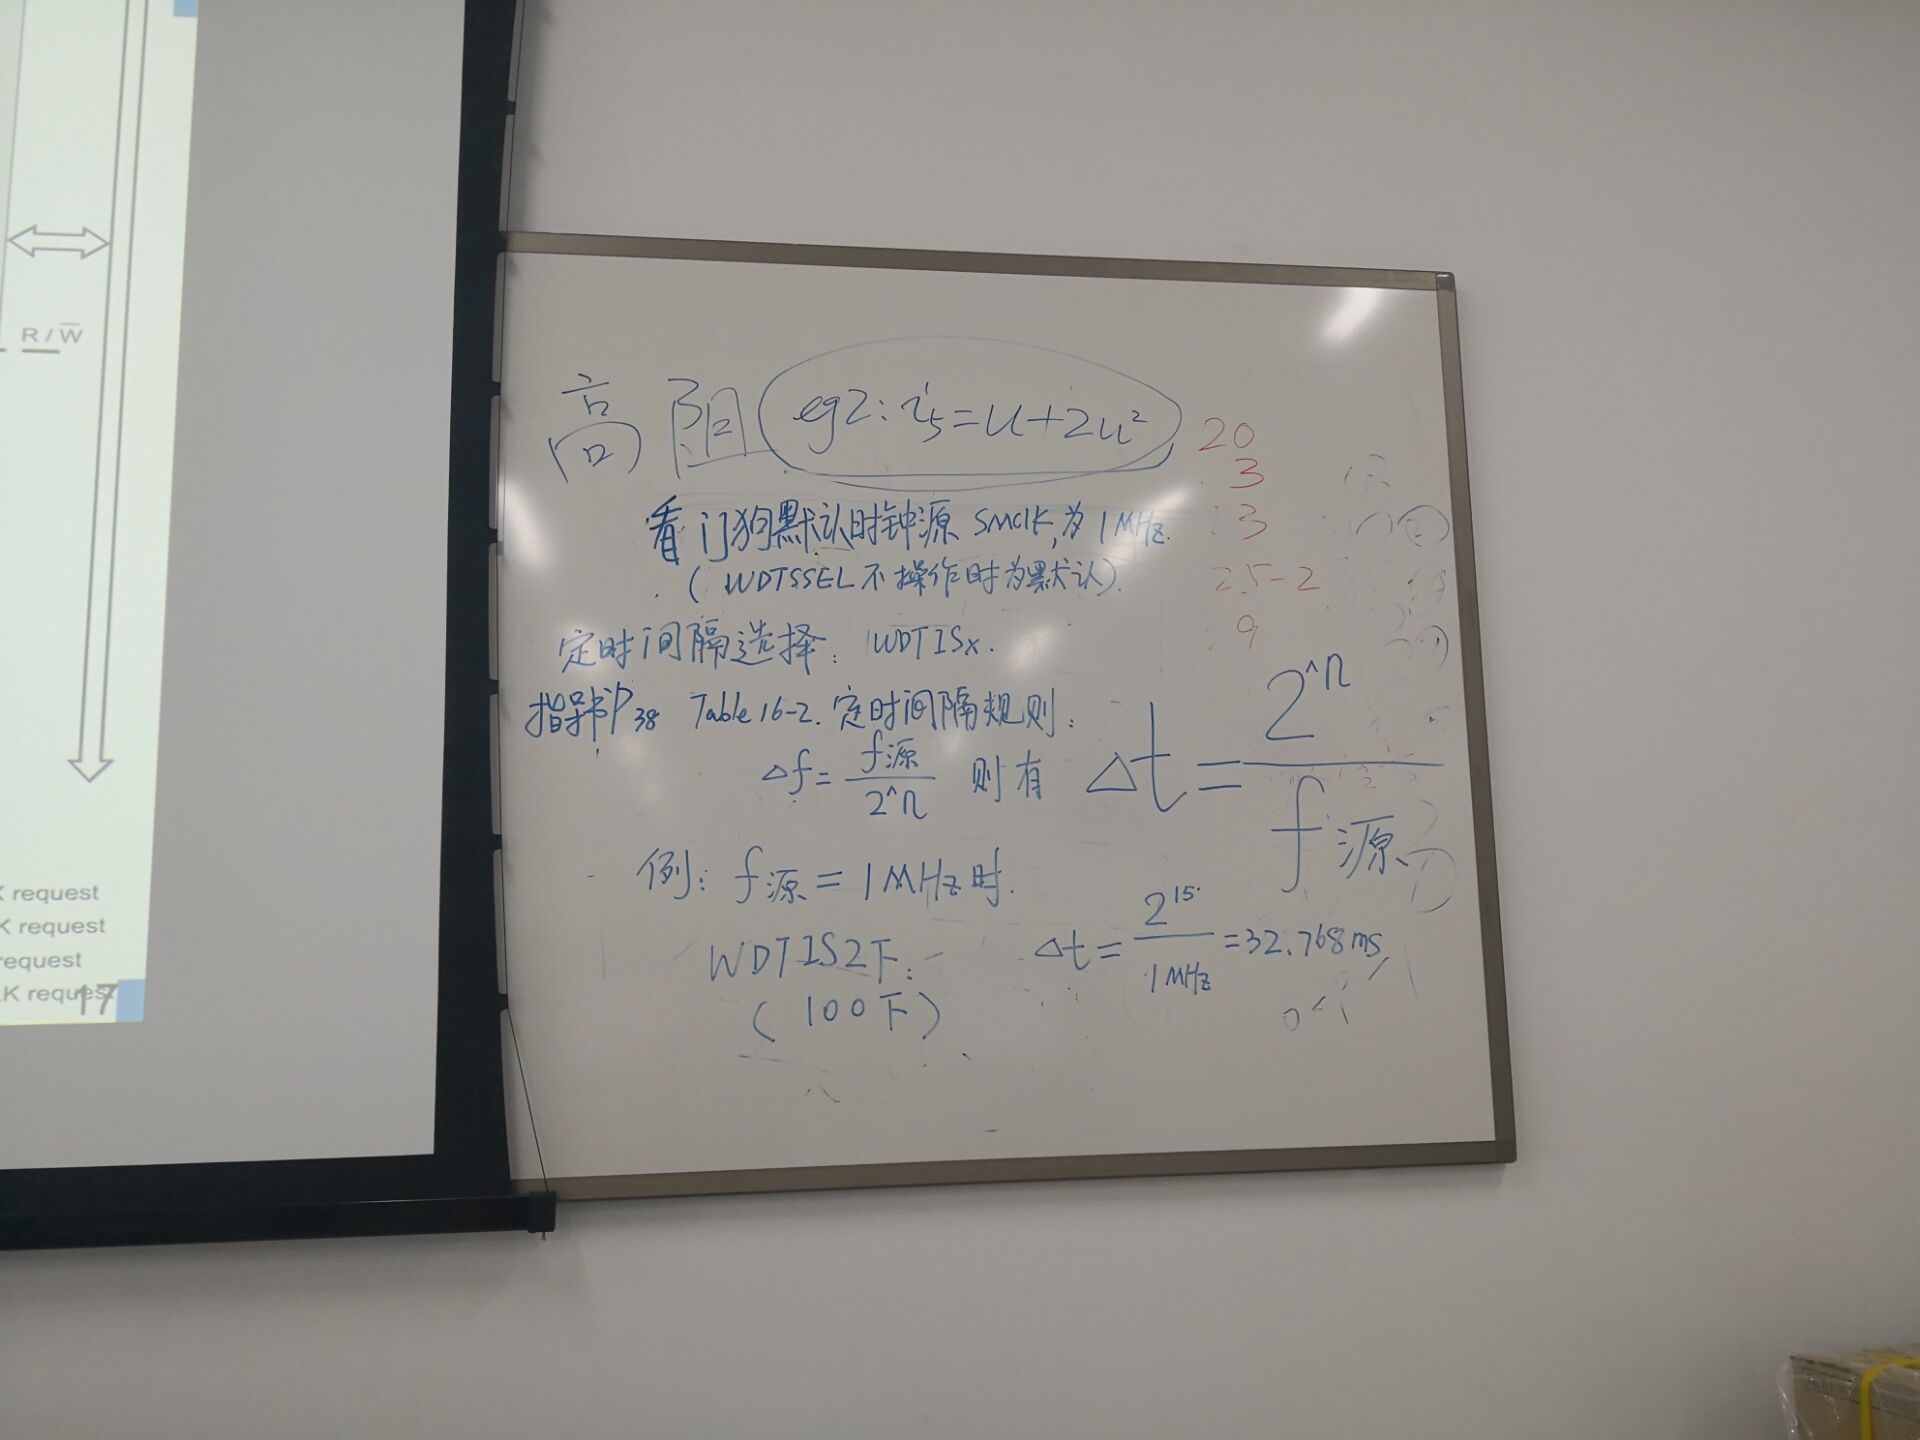 R / W
K request
K request
request
K request
17
高阻
eg2: i5=u+2u²
20
3
3
25-2
9
看门狗默认时钟源 SMCLK,为 1 MHz.
( WDTSSEL 不操作时为默认).
定时间隔选择: WDTISx.
指导书P38 Table 16-2. 定时间隔规则:
Δf= f源 / 2^n 则有 Δt= 2^n / f源
例: f源 = 1MHz时.
WDTIS2下: Δt= 2^15 / 1MHz =32.768ms,
( 100下)